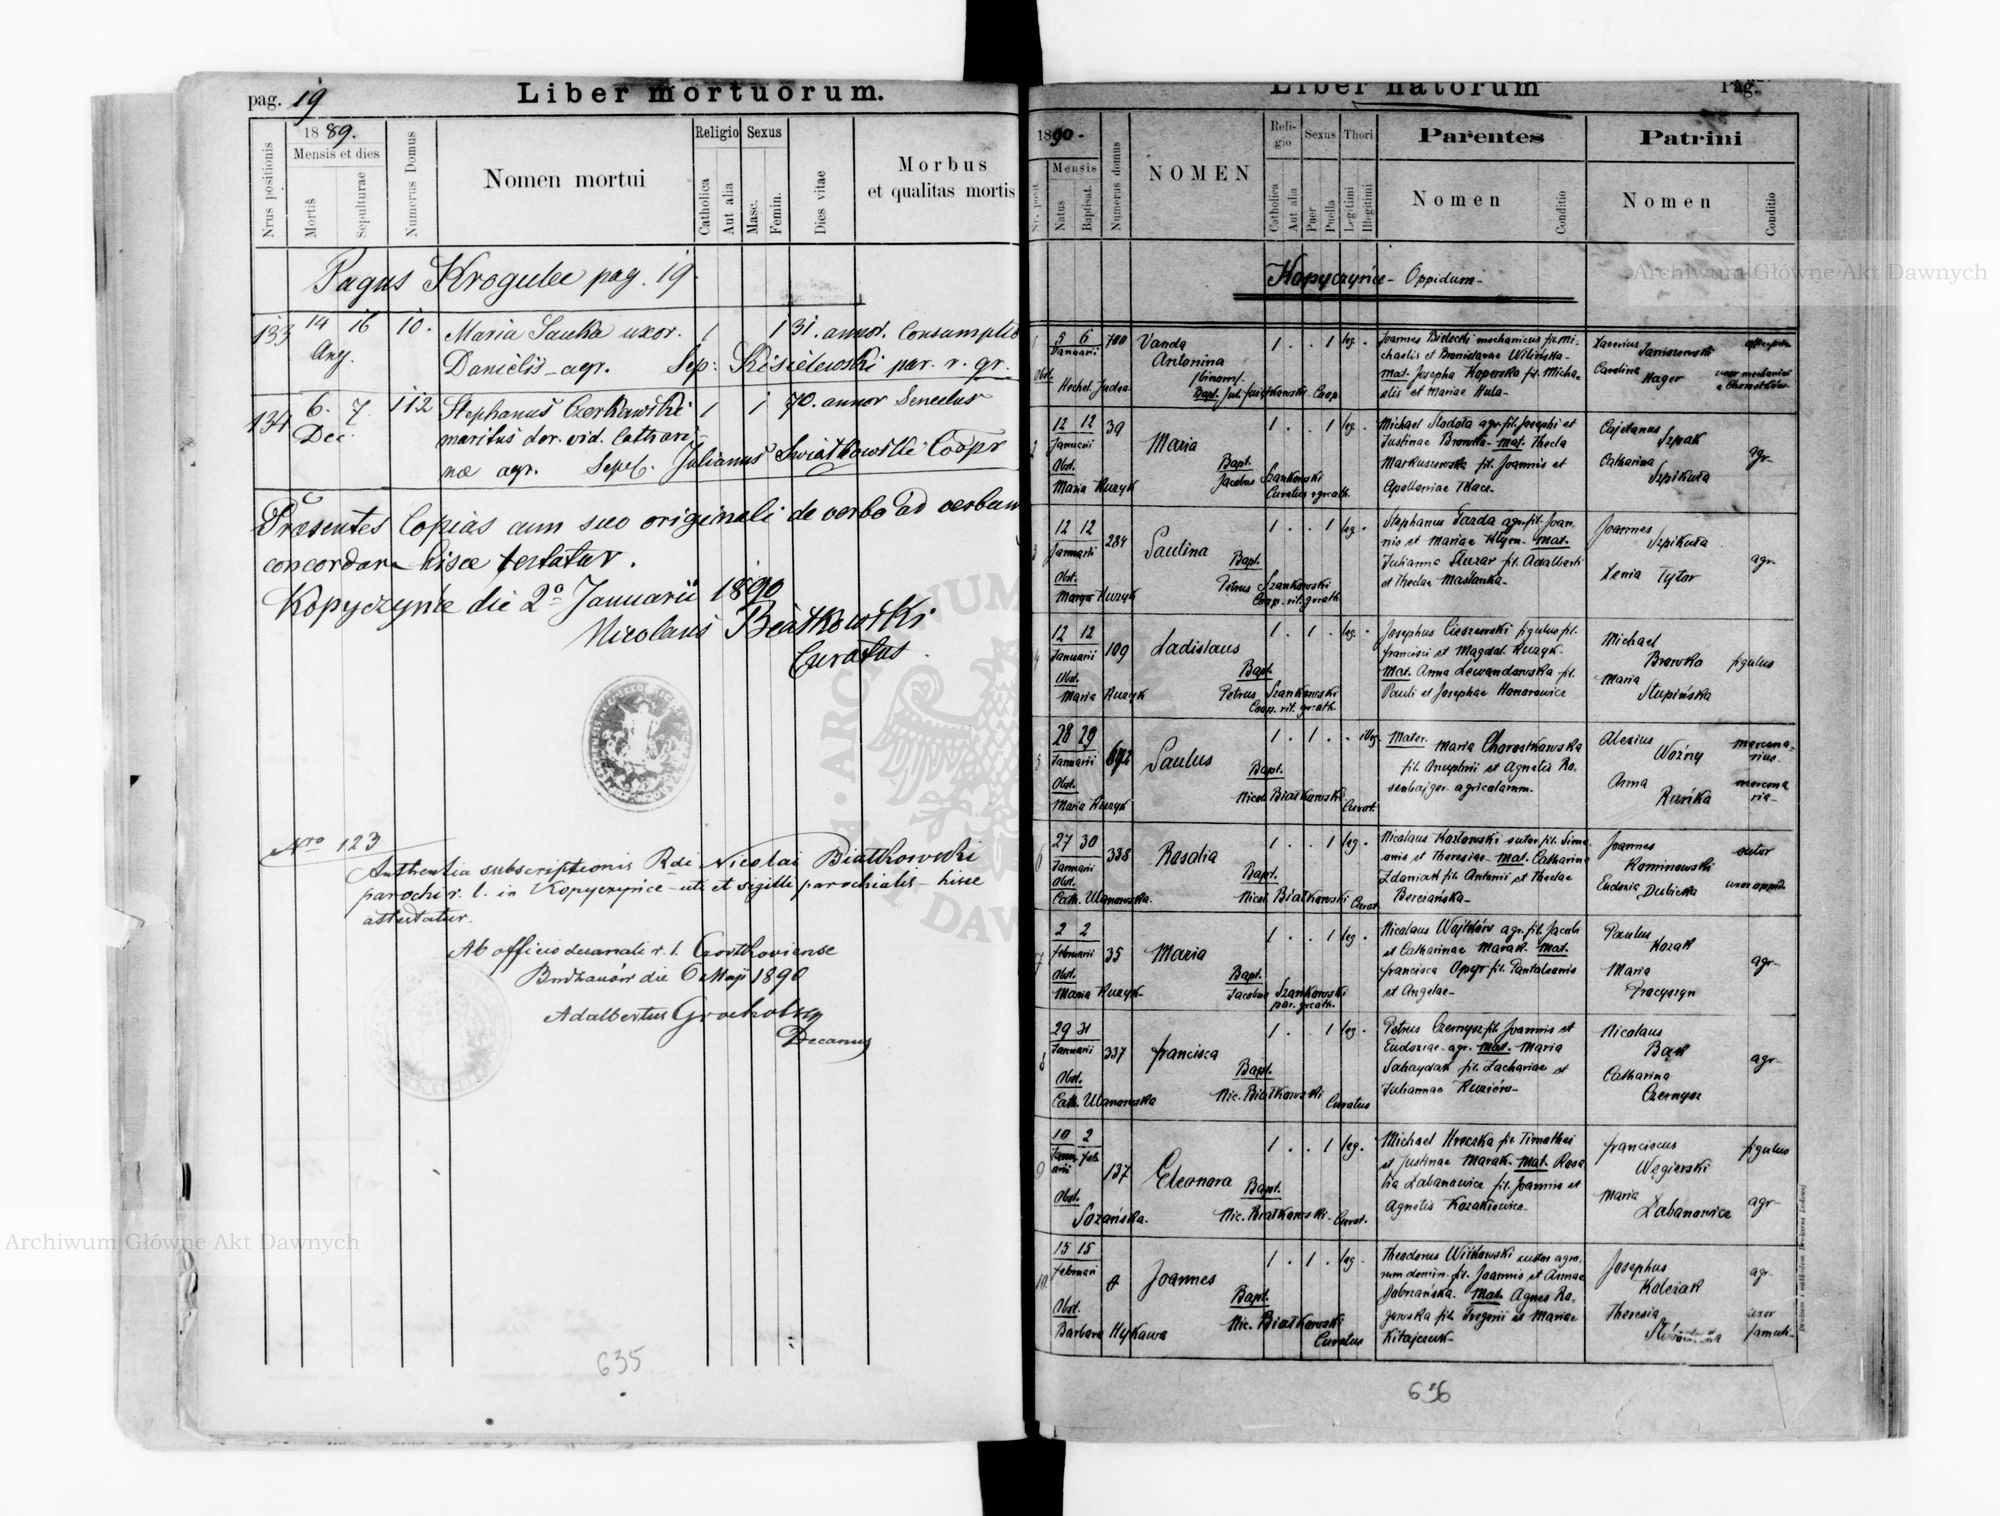 pag. 19
Liber mortuorum.
Nrus positionis
1889.
Mensis et dies
Mortis
Sepulturae
Numerus Domus
Nomen mortui
Religio
Catholica
Aut alia
Sexus
Masc.
Femin.
Dies vitae
Morbus
et qualitas mortis
Pagus Krogulec pag. 19.
133 14 16 10. Maria Saucka uxor. 1 1 31. annor. Consumptio
Aug. Danielis agr. Sep: Kisielewski par. r. gr.
134 6. 7. 112 Stephanus Czerkawski 1 1 70. annor Senectus
Dec. maritus der. vid. Cathari
nae agr. Sepel. Julianus Swiatkowski Coopr
Praesentes Copias cum suo originali de verbo ad verbum
concordare hisce testatur.
Kopyczyńce die 2º Januarii 1890
Nicolaus Białkowski
Curatus.
Nro 123
Authentia subscriptionis Rdi Nicolai Białkowski
parochi r. l. in Kopyczyńce uti et sigilli parochialis hisce
attestatur.
Ab officio decanali r. l. Czortkoviense
Budzanów die 6 Maji 1890
Adalbertus
Decanus
635
Liber natorum
Pag.
1890.
Nr. posit.
Mensis
Natus
Baptisat.
Numerus domus
NOMEN
Religio
Catholica
Aut alia
Sexus
Puer
Puella
Thori
Legtimi
Illegitimi
Parentes
Nomen
Conditio
Patrini
Nomen
Conditio
Kopyczyńce - Oppidum -
1 5 6 700 Vanda 1 . . 1 leg. Joannes Bielecki mechanicus fil. Mi-
Januarii Antonina chaelis et Bronislavae Wilińska -
/binom/. mat. Josepha Koperska fil. Micha-
Obst. Hechel Judea Bapt. Jul. Świątkowski Coop. elis et Mariae Hula -
Xaverius Janiszewski
Carolina Hager uxor mechanici
e Chorostków
2 12 12 39 Maria 1 . . 1 leg. Michael Stodoła agr. fil. Josephi et
Januarii Justinae Browka - mat. Thecla
Obst. Bapt. Markuszewska fil. Joannis et
Maria Kuzyk Jacobus Szankowski Apolloniae Tkacz.
Curatus r. grcath.
Cajetanus Szpak
Catharina Szpikuła agr-
3 12 12 284 Paulina 1 . . 1 leg. Stephanus Gazda agr. fil. Joan-
Januarii nis et Mariae Klym. mat.
Obst. Bapt. Julianna Sluzar fil. Adalberti
Marya Kuzyk Petrus Szankowski et Theclae Maślanka -
Coop. rit. grcath.
Joannes Szpikuła
Xenia Tytor agr-
4 12 12 109 Ladislaus 1 . 1 . leg. Josephus Cieszewski figulus fil.
Januarii Francisci et Magdal. Kuzyk -
Obst. Bapt. Mat. Anna Lewandowska fil.
Maria Kuzyk Petrus Szankowski Pauli et Josephae Honorowicz
Coop. rit. grcath.
Michael Browko figulus
Maria Stupińska
5 28 29 692 Paulus 1 . 1 . . illeg. Mater. Maria Chorostkowska
Januarii fil. Onuphrii et Agnetis Ro-
Obst. Bapt. senbajger agricolarum -
Maria Kuzyk Nicol. Białkowski Curat.
Alexius Woźny mercena-
rius -
Anna mercena
ria -
6 27 30 338 Rosalia 1 . . 1 leg. Nicolaus Kozłowski sutor fil. Sime
Januarii onis et Theresiae - mat. Catharina
Obst. Bapt. Zdaniak fil. Antonii et Theclae
Cath. Ulanowska Nicol. Białkowski Curat. Bereżańska -
Joannes Kominowski sutor
Eudoxia Dubicka uxor oppid.
7 2 2 35 Maria 1 . . 1 leg. Nicolaus Wojtków agr. fil. Jacobi
Februarii et Catharinae Marak. Mat.
Obst. Bapt. Francisca Opyr fil. Pantaleonis
Maria Kuzyk - Jacobus Szankowski et Angelae -
par. grcath.
Paulus Kozak
Maria Pracyszyn agr-
8 29 31 337 Francisca 1 . . 1 leg. Petrus Czernysz fil. Joannis et
Januarii Eudoxiae - agr. mat. Maria
Obst. Bapt. Sahaydak fil. Zachariae et
Cath. Ulanowska Nic. Białkowski Curatus Juliannae Kuziów -
Nicolaus Bąk
Catharina Czernysz agr-
9 10 2 137 Eleonora 1 . . 1 leg. Michael Hreczka fil. Timothei
Janu- Feb. et Justinae Marak - Mat. Rosa
arii lia Łabanowicz fil. Joannis et
Obst. Bapt. Agnetis Kozakiewicz -
Sozańska. Nic. Białkowski - Curat.
Franciscus Węgierski figulus
Maria Łabanowicz agr-
10 15 15 Joannes 1 . 1 . leg. Theodorus Wiśłowski custos agro-
Februarii rum domin. fil. Joannis et Annae
Obst. Bapt. Jabrzańska. Mat. Agnes Ro-
Barbara Hykawa Nic. Białkowski gowska fil. Gregorii et Mariae
Curatus Kitajczuk -
Josephus Kolczak agr-
Theresia uxor
famuli -
636
Archiwum Główne Akt Dawnych
Archiwum Główne Akt Dawnych